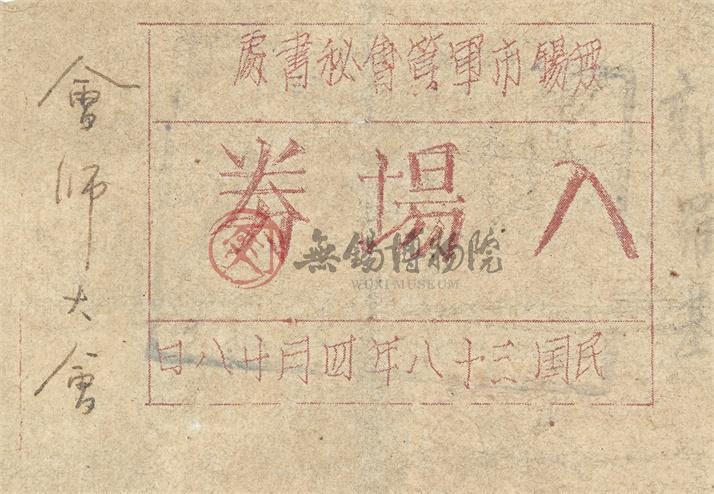 無錫市軍管會秘書處
入場券
民国三十八年四月廿八日
會師大會
無錫博物院
WUXI MUSEUM